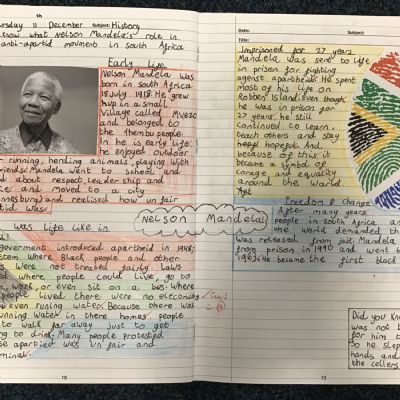 ursday 11 December Subject: History
know what Nelson Mandela's role in
anti-apartid movment in south Africa
Early Life
Nelson Mandela was
born in south Africa
18 July 1918. He grew
up in a small
village called Mvezo
and belonged to
the Thembu people.
In he is early life
he enjoyed outdoor
running, herding animals, playing with
friends. Mandela went to school and
about respect, leadership and
and moved to a city
and realised how un fair
was.
Nelson Mandela
was Life Like in
goverment introduced apartheid in 1948,
where Black people and other
were not treated fairly. Laws
where people could live, go to
work, or even sit on a bus. Where
people lived there were no
even runing water. Because there was
running water in there homes, people
to walk far away just to get
to drink. Many people protested
apartied was un fair and
18
Date: Subject:
Title:
Imprisoned for 27 years
Mandela was sent to life
in prison for fighting
against apartheid. He spent
most of his life on
Robben Island. Even though
he was in prison for
27 years, he still
continued to learn,
teach others and stay
hopeful. And
because of this it
became a symbol of
corage and equality
around the world.
Freedom & change
After many years
people in south Africa an
the world demanded th
was released from jail. Mandela
from prison in 1990 and went t
He became the first black
Did you Kn
was not b
for him t
So he slep
hands and
the cellers
19